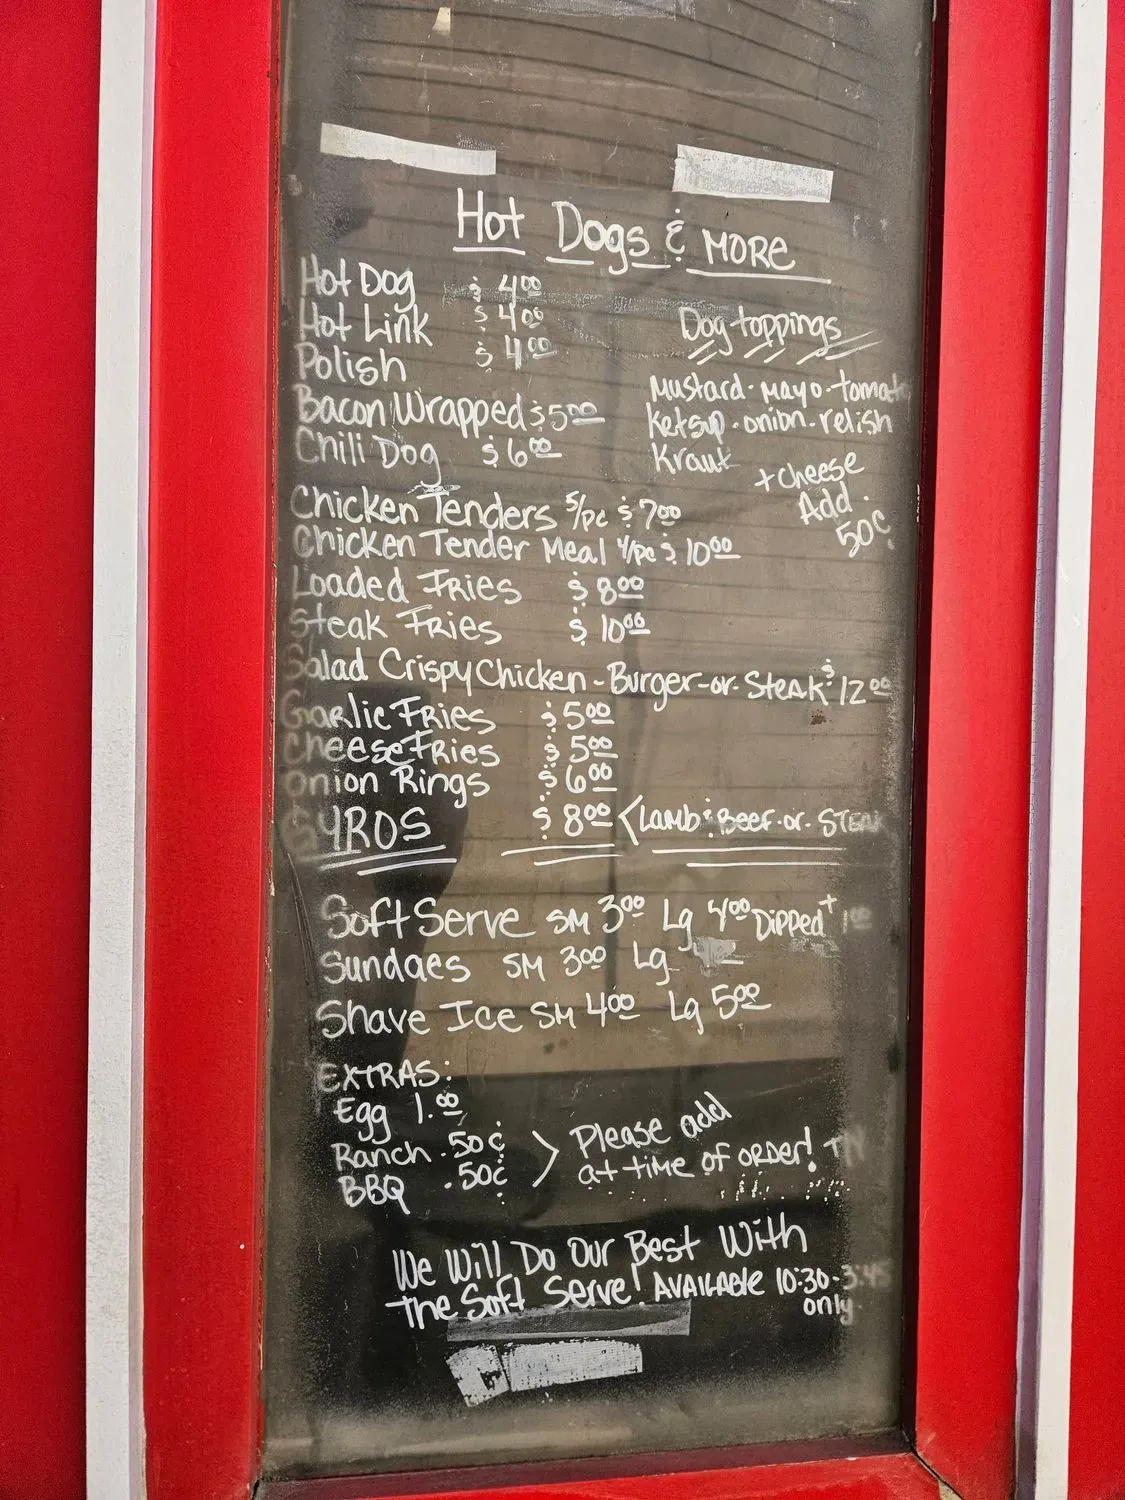 Hot Dogs & MORE
Hot Dog $ 4.00
Hot Link $ 4.00
Polish $ 4.00
Bacon Wrapped $ 5.00
Chili Dog $ 6.00
Dog toppings
Mustard · Mayo · tomato
Ketsup · onion · relish
Kraut
+ cheese
Add
50¢
Chicken Tenders 5/pc $ 7.00
Chicken Tender Meal 4/pc $ 10.00
Loaded Fries $ 8.00
Steak Fries $ 10.00
Salad Crispy Chicken - Burger - or - Steak $ 12.00
Garlic Fries $ 5.00
Cheese Fries $ 5.00
Onion Rings $ 6.00
GYROS $ 8.00 < Lamb & Beef - or - STEAK
Soft Serve SM 3.00 Lg 4.00 Dipped + 1.00
Sundaes SM 3.00 Lg
Shave Ice SM 4.00 Lg 5.00
EXTRAS:
Egg 1.00
Ranch .50¢
BBQ .50¢
> Please add
at time of ORDER!
We Will Do Our Best With
the Soft Serve! AVAILABLE 10:30-3:45
only